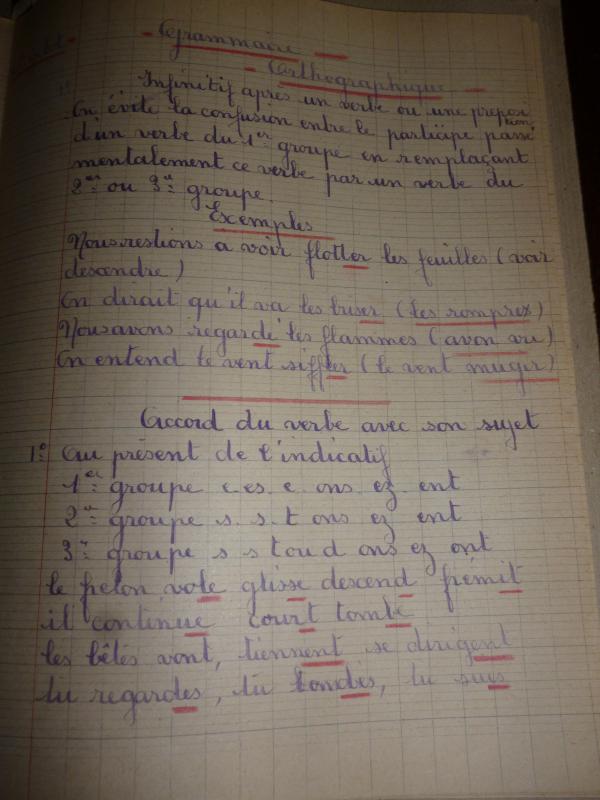 Grammaire
Orthographique
Infinitif après un verbe ou une preposition
On évite la confusion entre le participe passé
d'un verbe du 1er groupe en remplaçant
mentalement ce verbe par un verbe du
2me ou 3me groupe.
Exemples
Nous restions a voir flotter les feuilles (voir
descendre)
On dirait qu'il va les briser (les romprex)
Nous avons regardé les flammes (avon vu)
On entend le vent siffler (le vent mugir)
Accord du verbe avec son sujet
1° Au présent de l'indicatif
1er groupe e es e ons ez ent
2e groupe s. s. t ons ez ent
3e groupe s s t ou d ons ez ont
le pelon vole glisse descend frémit
il continue court tombe
les bêtes vont, tiennent se dirigent
tu regardes, tu tondes, tu suis